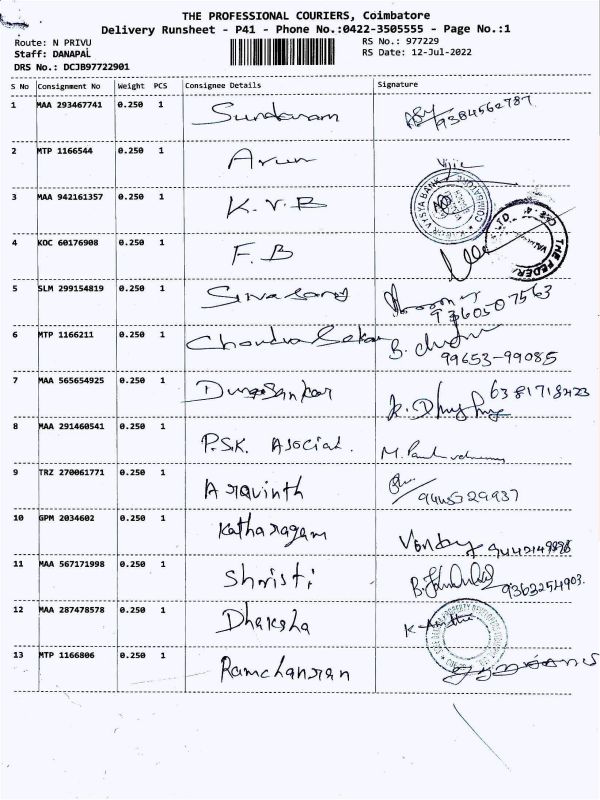 THE PROFESSIONAL COURIERS, Coimbatore
Delivery Runsheet - P41 - Phone No.:0422-3505555 - Page No.:1
Route: N PRIVU RS No.: 977229
Staff: DANAPAL RS Date: 12-Jul-2022
DRS No.: DCJB97722901
S No Consignment No Weight PCS Consignee Details Signature
1 MAA 293467741 0.250 1 Sundaram 9384562787
2 MTP 1166544 0.250 1 Arun
3 MAA 942161357 0.250 1 K.V.B
4 KOC 60176908 0.250 1 F.B
THE FEDER
5 SLM 299154819 0.250 1 9360507563
6 MTP 1166211 0.250 1 Chandra Sekar 99653-99085
7 MAA 565654925 0.250 1 Durgasankar 6381718423
8 MAA 291460541 0.250 1 P.S.K. Asocial.
9 TRZ 270061771 0.250 1 Aravinth 9445729937
10 GPM 2034602 0.250 1 Katharagam
11 MAA 567171998 0.250 1 Shristi 9363254903.
12 MAA 287478578 0.250 1 Dhaksha
13 MTP 1166806 0.250 1 Ramchanran